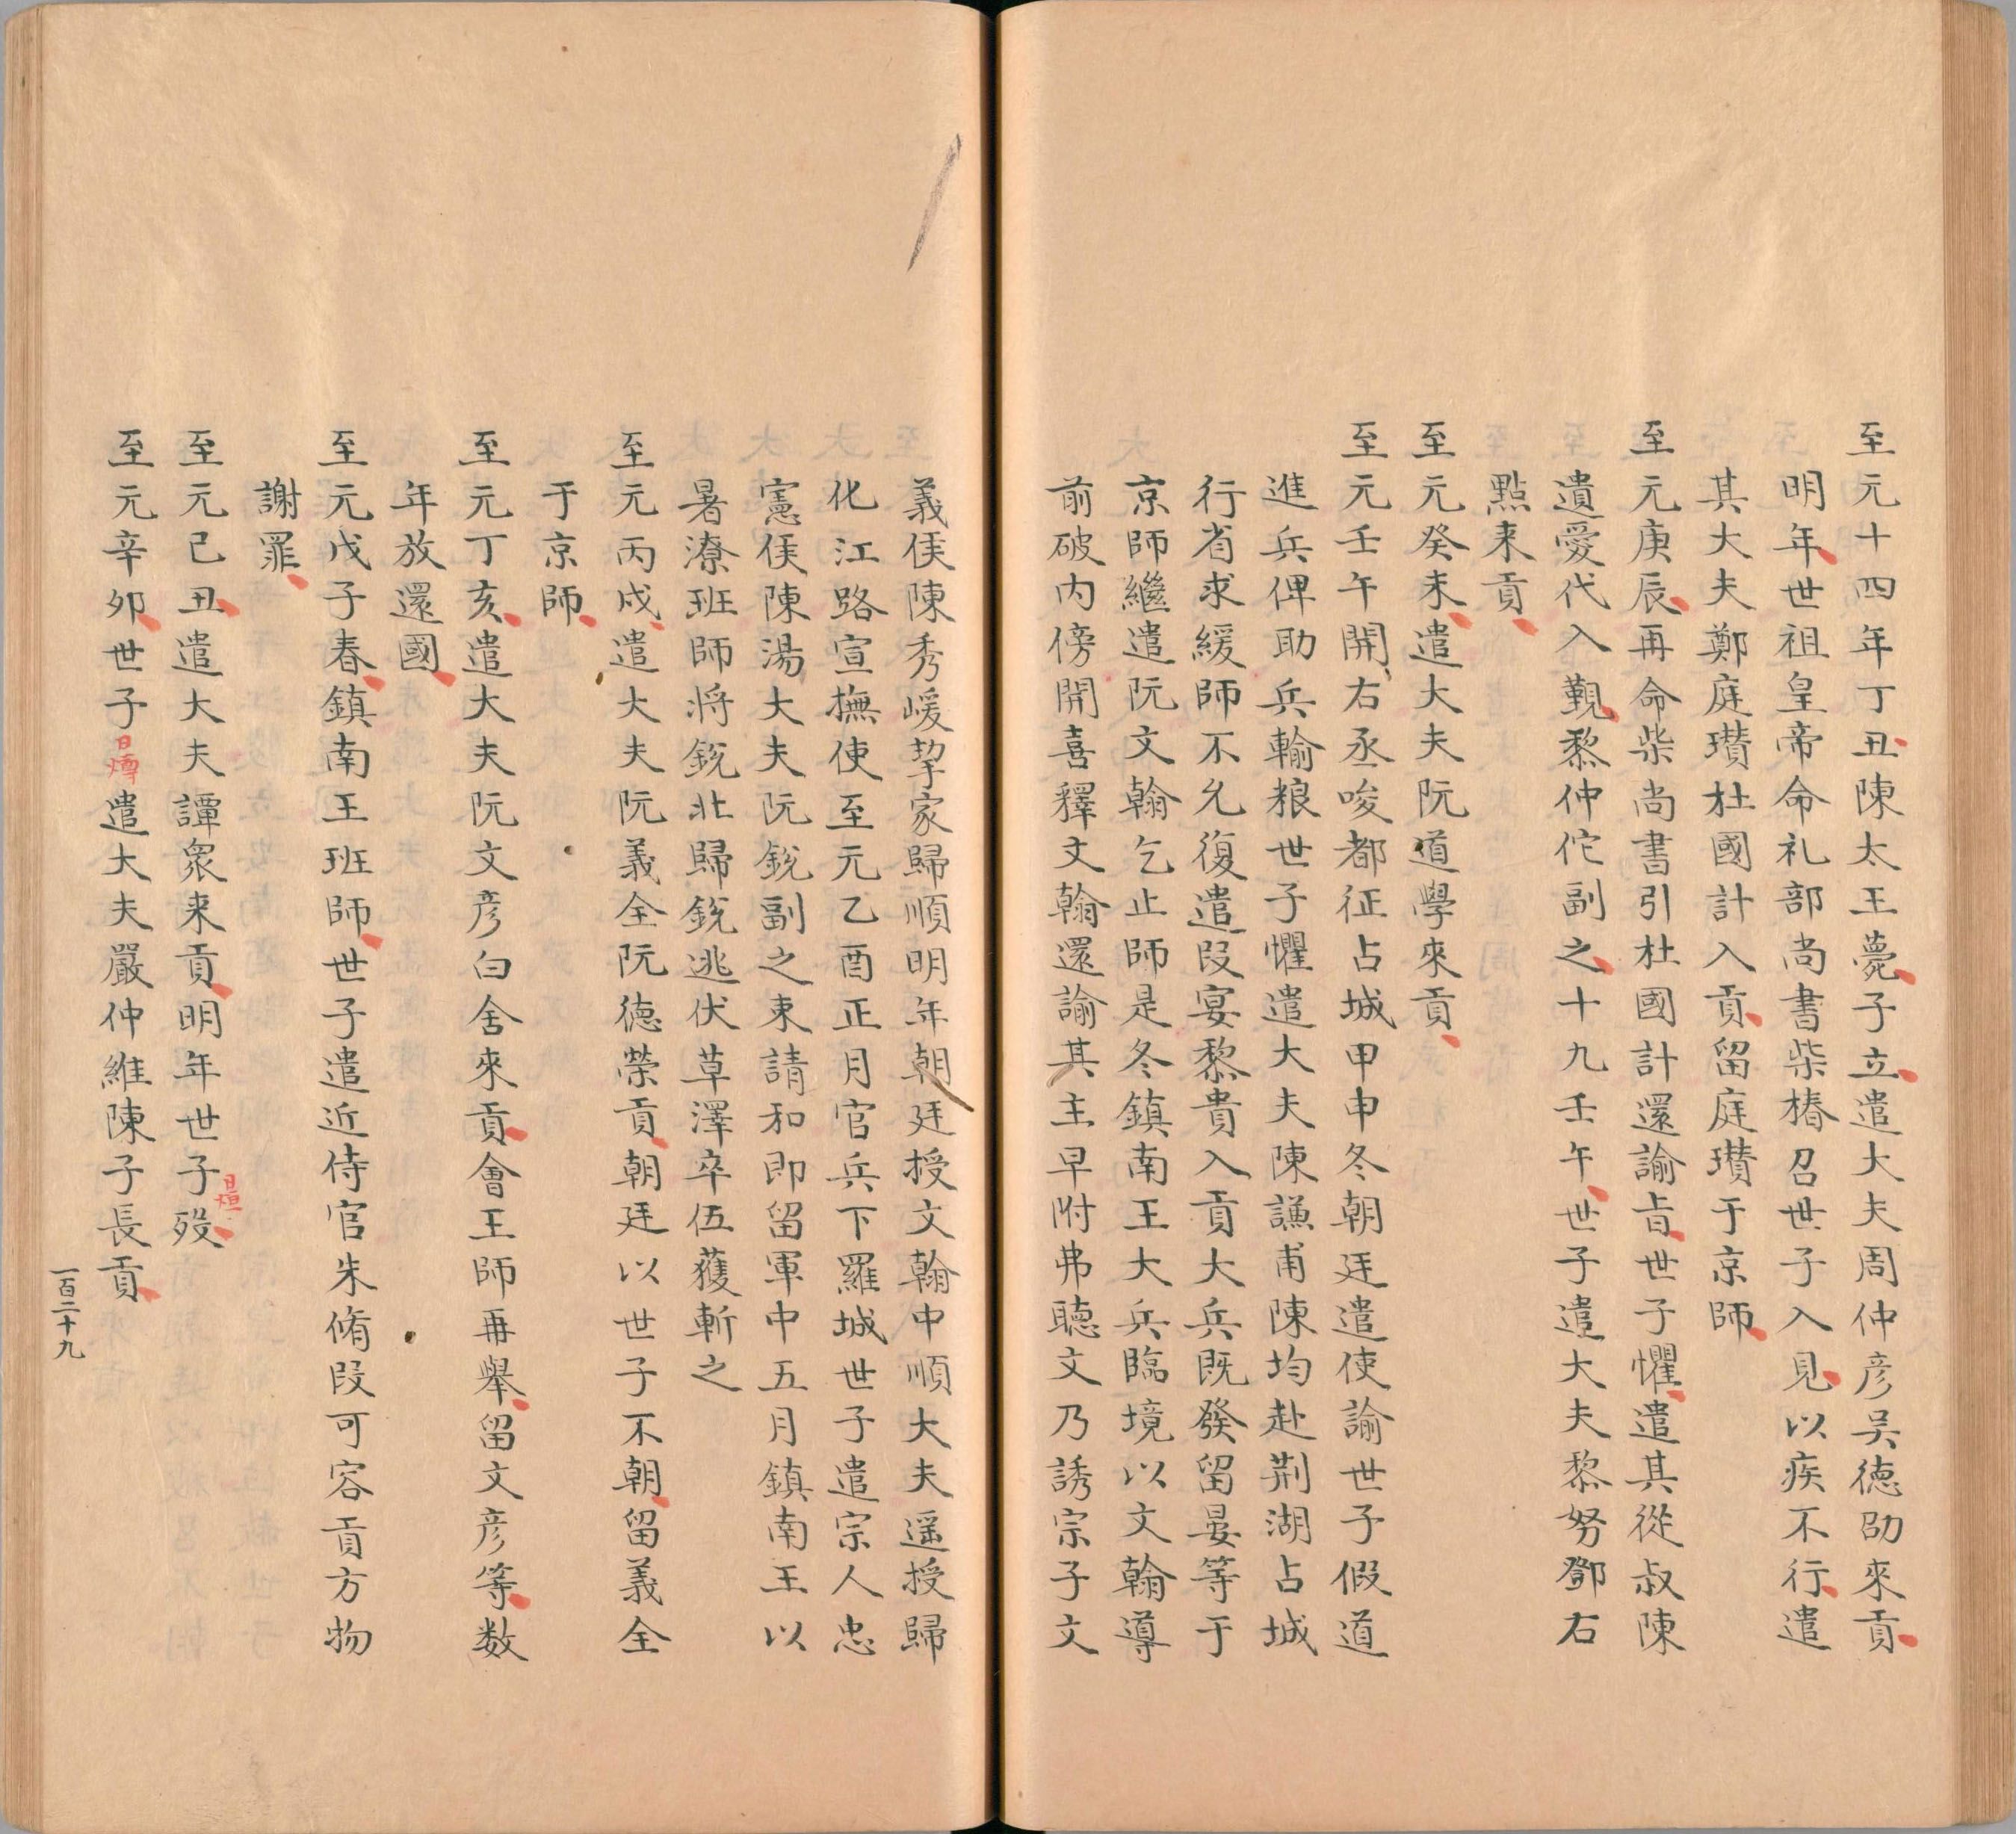 至元十四年丁丑陳太王薨子立遣大夫周仲彦吴德卲來貢
明年世祖皇帝命礼部尚書柴椿召世子入見以疾不行遣
其大夫鄭庭瓚杜國計入貢留庭瓚于京師
至元庚辰再命柴尚書引杜國計還諭旨世子懼遣其從叔陳
遺愛代入覲黎仲佗副之十九壬午世子遣大夫黎努鄧右
點来貢
至元癸未遣大夫阮道學來貢
至元壬午開右丞唆都征占城甲申冬朝廷遣使諭世子假道
進兵俾助兵輸粮世子懼遣大夫陳謙甫陳均赴荆湖占城
行省求緩師不允復遣段宴黎貴入貢大兵既發留晏等于
京師繼遣阮文翰乞止師是冬鎮南王大兵臨境以文翰導
前破内傍開喜釋文翰還諭其主早附弗聽文乃誘宗子文
義侯陳秀嵈挈家歸順明年朝廷授文翰中順大夫遥授歸
化江路宣撫使至元乙酉正月官兵下羅城世子遣宗人忠
憲侯陳湯大夫阮銳副之来請和即留軍中五月鎮南王以
暑潦班師将銳北歸銳逃伏草澤卒伍獲斬之
至元丙戍遣大夫阮義全阮德榮貢朝廷以世子不朝留義全
于京師
至元丁亥遣大夫阮文彦白舍來貢會王師再舉留文彦等数
年放還國
至元戊子春鎮南王班師世子遣近侍官朱脩段可容貢方物
謝罪
至元己丑遣大夫譚衆来貢明年世子日烜殁
至元辛卯世子日燇遣大夫嚴仲維陳子長貢
一百二十九